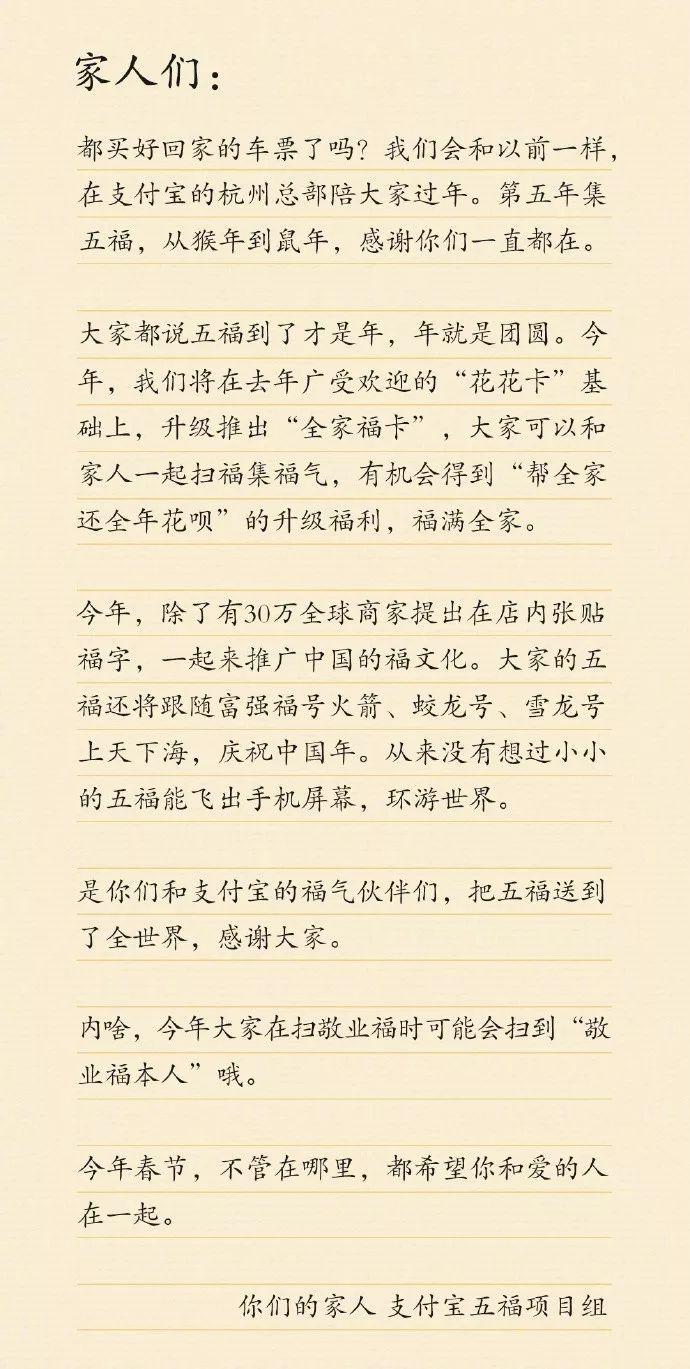 家人们：
都买好回家的车票了吗？我们会和以前一样，
在支付宝的杭州总部陪大家过年。第五年集
五福，从猴年到鼠年，感谢你们一直都在。
大家都说五福到了才是年，年就是团圆。今
年，我们将在去年广受欢迎的“花花卡”基
础上，升级推出“全家福卡”，大家可以和
家人一起扫福集福气，有机会得到“帮全家
还全年花呗”的升级福利，福满全家。
今年，除了有30万全球商家提出在店内张贴
福字，一起来推广中国的福文化。大家的五
福还将跟随富强福号火箭、蛟龙号、雪龙号
上天下海，庆祝中国年。从来没有想过小小
的五福能飞出手机屏幕，环游世界。
是你们和支付宝的福气伙伴们，把五福送到
了全世界，感谢大家。
内啥，今年大家在扫敬业福时可能会扫到“敬
业福本人”哦。
今年春节，不管在哪里，都希望你和爱的人
在一起。
你们的家人 支付宝五福项目组